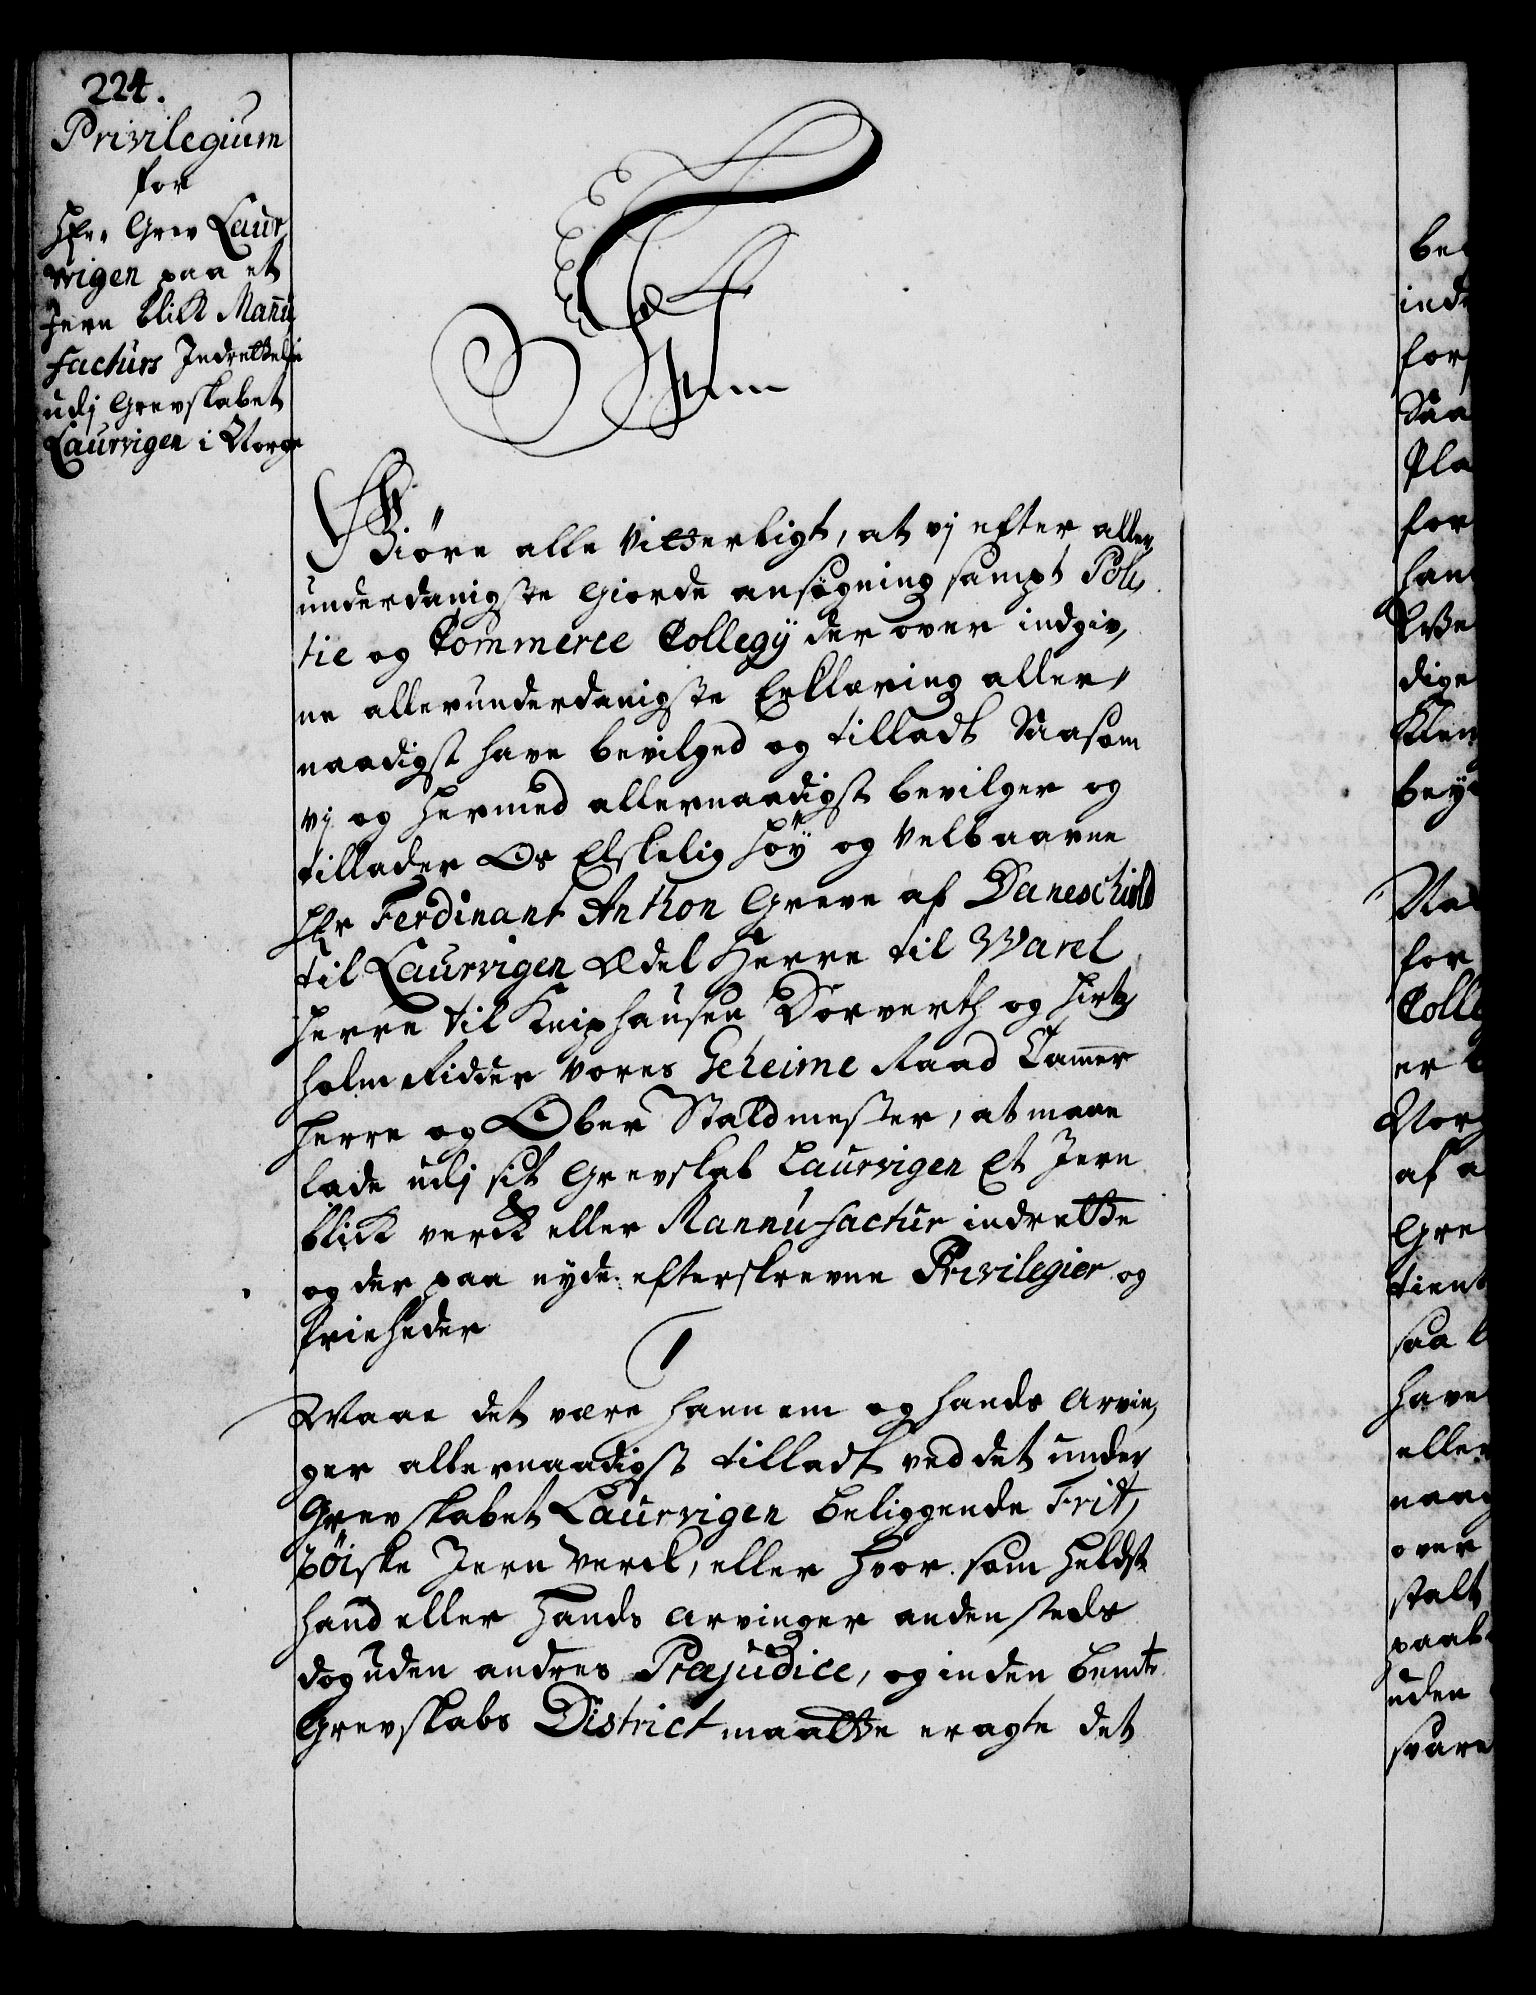 224.
Privilegium
for
Hr. Grev Laur
vigen paa et
Jern blick Mannu
facturs Indrettelse
udj Grevskabet
Laurvigen i Norge
Giöre alle Vitterligt, at vj efter aller
underdanigste Giorde ansøgning sampt Poli
tie og Commerce Collegÿ der over indgiv,
ne allerunderdanigste Erklæring aller
naadigst have bevilged og tilladt Saasom
vj og hermed allernaadigst bevilger og
tillader Os Elskelig höÿ og Velbaarne
Hr Ferdinant Anthon Greve af Daneschiold
til Laurvigen Ædel Herre til Warel
Herre til Kniphausen Dorverth og Hirtz
holm Ridder Vores Geheime Raad Camer
herre og Ober Staldmester, at maae
lade udj sit Grevskab Laurvigen Et Jern
blick verck eller Mannufactur indrette
og der paa nyde efterskrevne Privilegier og
Frieheder
1
Maae det være hannem og hands Arvin,
ger allernaadigst tilladt ved det under
Grevskabet Laurvigen beliggende Frit,
zöiske Jern Verck, eller hvor som heldst
hand eller hands Arvinger andensteds
dog uden andres Præjudice, og inden bemte
Grevskabs District maatte eragte det
ind
for
Saa
Pla
for
dige
for
Colle
er
Nor
af a
Gre
tient
saa
have
eller
over
stalt
uden
svare